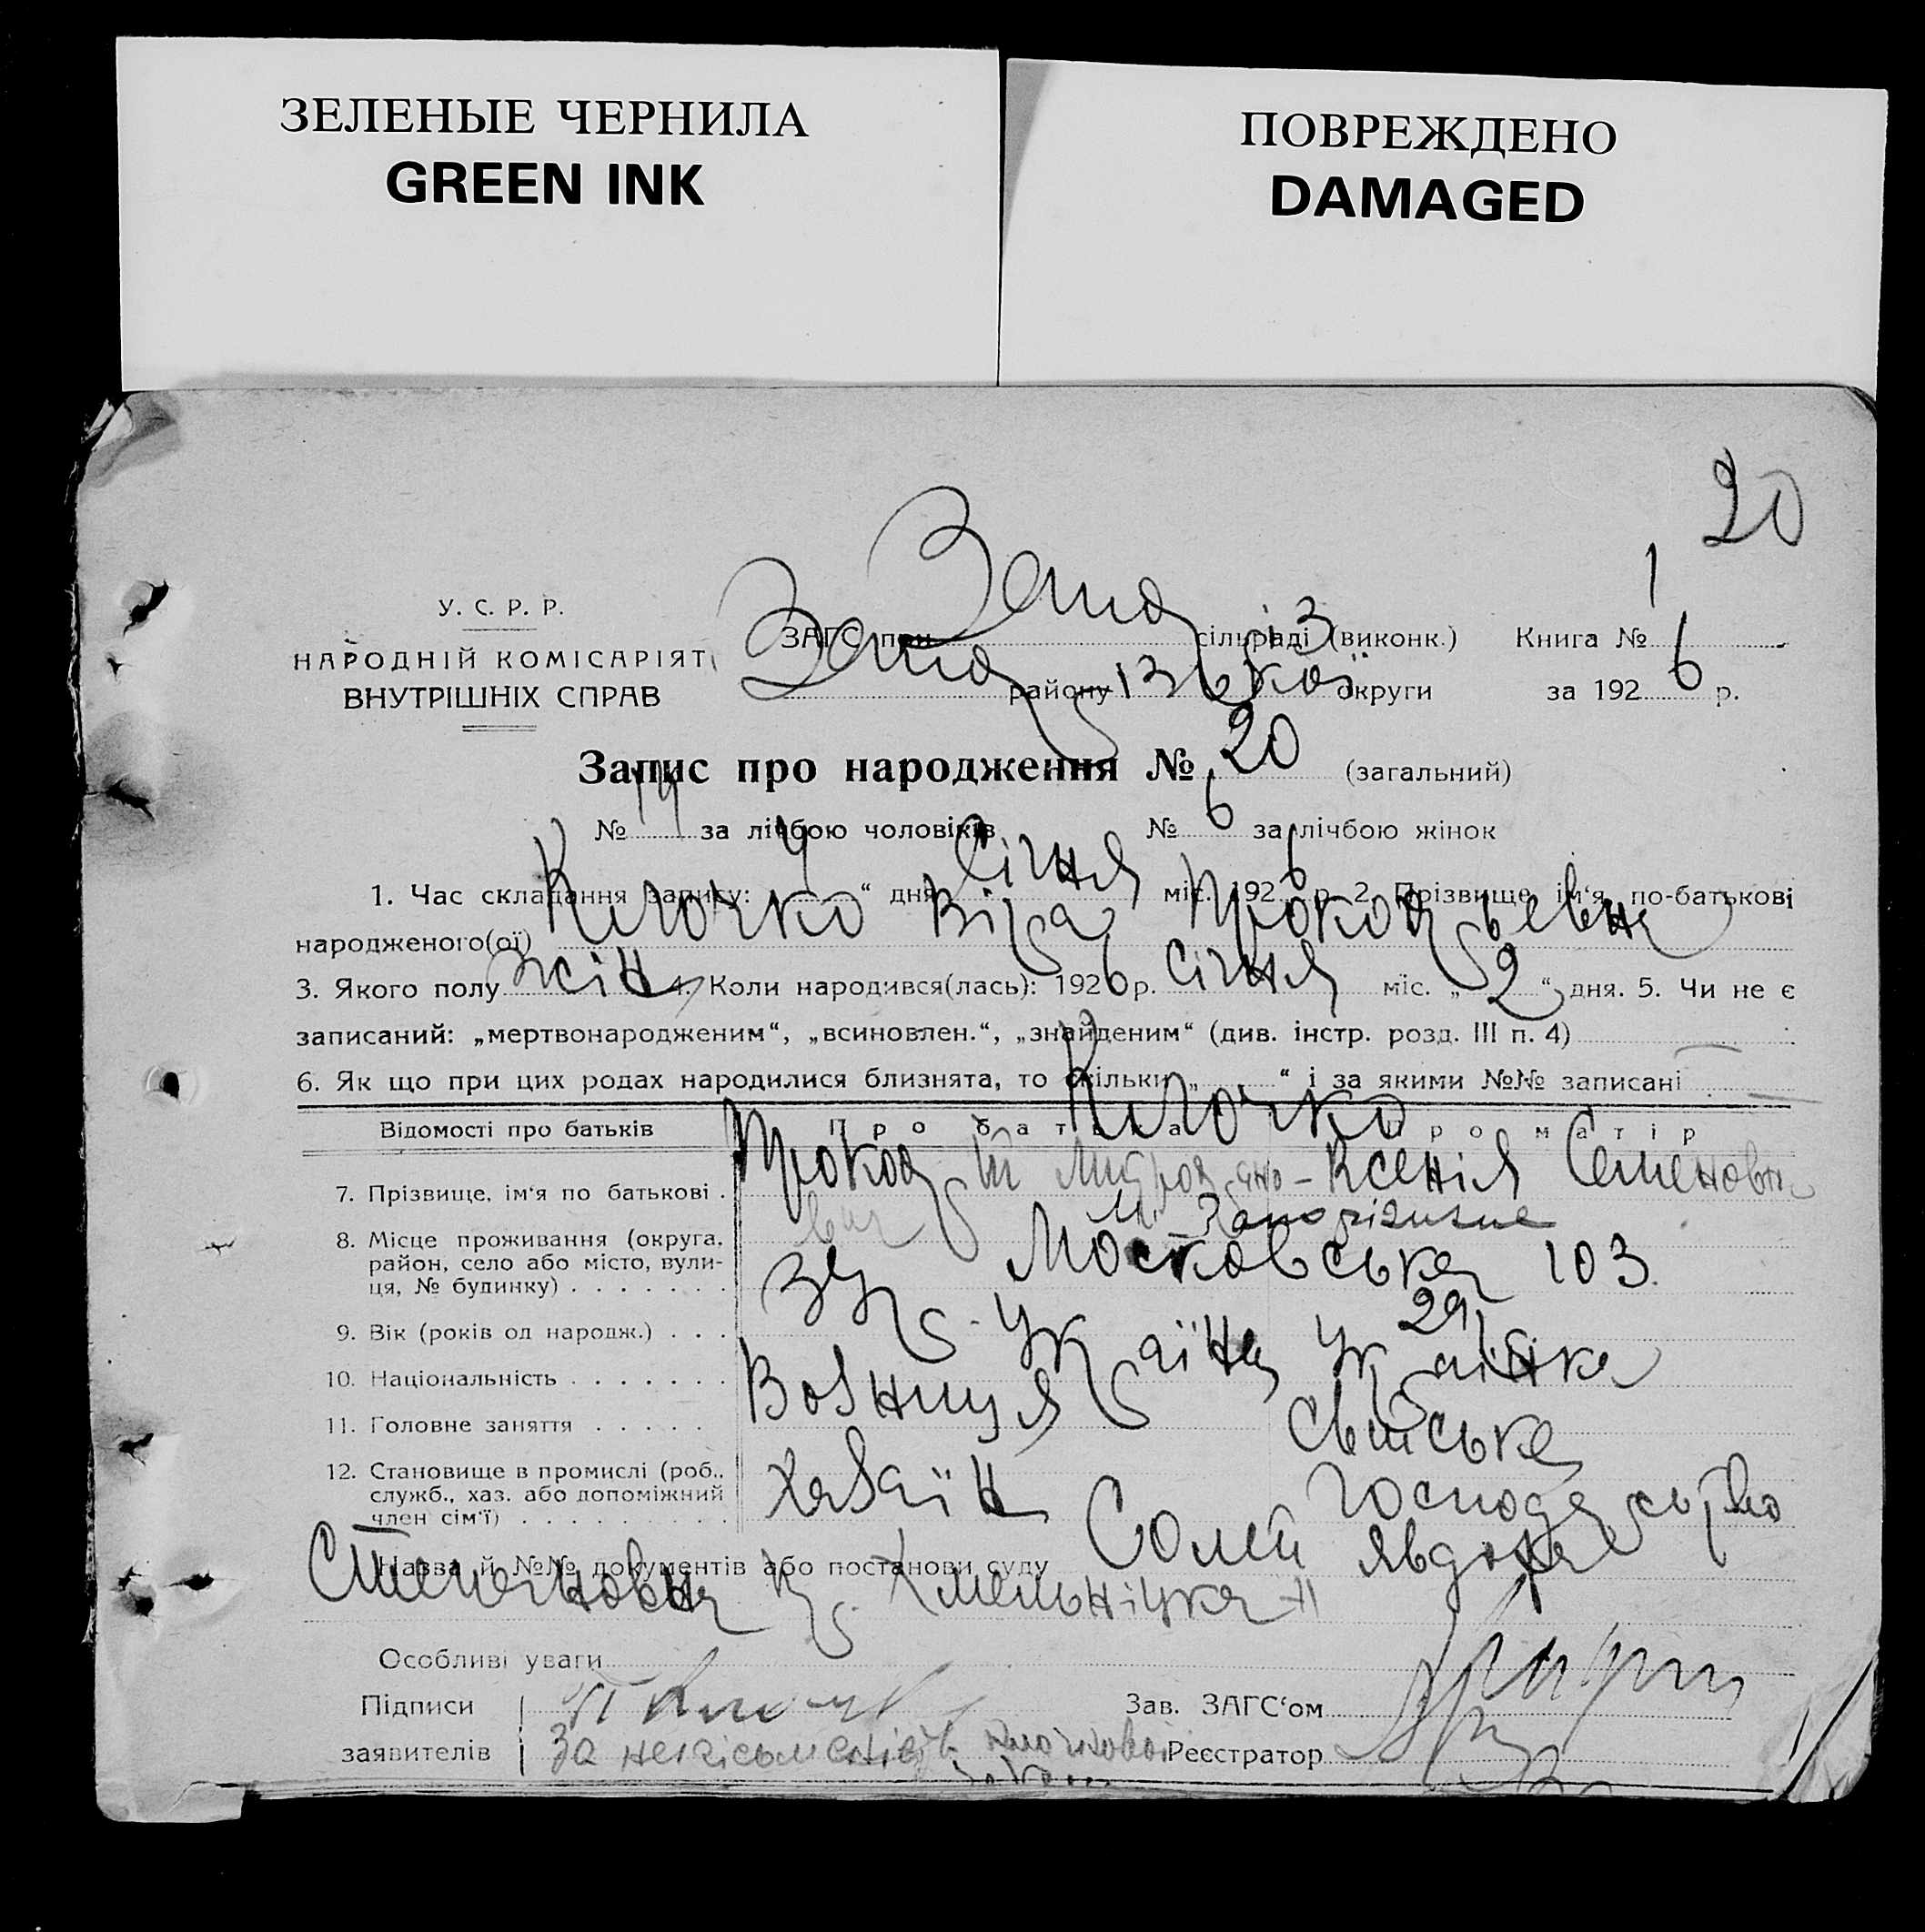 ЗЕЛЕНЫЕ ЧЕРНИЛА
GREEN INK
ПОВРЕЖДЕНО
DAMAGED
20
У. С. Р. Р.
НАРОДНІЙ КОМІСАРІЯТ
ВНУТРІШНІХ СПРАВ
ЗАГС при сільраді (виконк.) Книга № 1
району округи за 1926 р.
Запис про народження № 20 (загальний)
№ 14 за лічбою чоловіків № 6 за лічбою жінок
1. Час складання запису: 4 “ дня Січня міс. 1926 р. 2. Прізвище, ім‘я, по-батькові
народженого(ої) Клочко Віра Прокопьевна
3. Якого полу жін 4. Коли народився(лась): 1926 р. Січня міс. „ 2 “ дня. 5. Чи не є
записаний: „мертвонародженим“, „всиновлен.“, „знайденим“ (див. інстр. розд. III п. 4)
6. Як що при цих родах народилися близнята, то скільки „ “ і за якими №№ записані
Клочко
Відомості про батьків Про батька Про матір
7. Прізвище, ім‘я по батькові . Прокоп Ксенія Семеновна
8. Місце проживання (округа, район, село або місто, вулиця, № будинку) . . . . . . . м. Запоріжже Московська 103
9. Вік (років од народж.) . . . 29
10. Національність . . . . . . . Українец Українка
11. Головне заняття . . . . . Возниця Свійське
12. Становище в промислі (роб., служб., хаз. або допоміжний член сім‘ї) . . . . . . . . . Хазяїн Господарство
Назва й №№ документів або постанови суду Солей Явдоха
Степановна Хмельніцка
Особливі уваги
Підписи
заявителів За неписьменість Клочкової
Зав. ЗАГС‘ом
Реєстратор